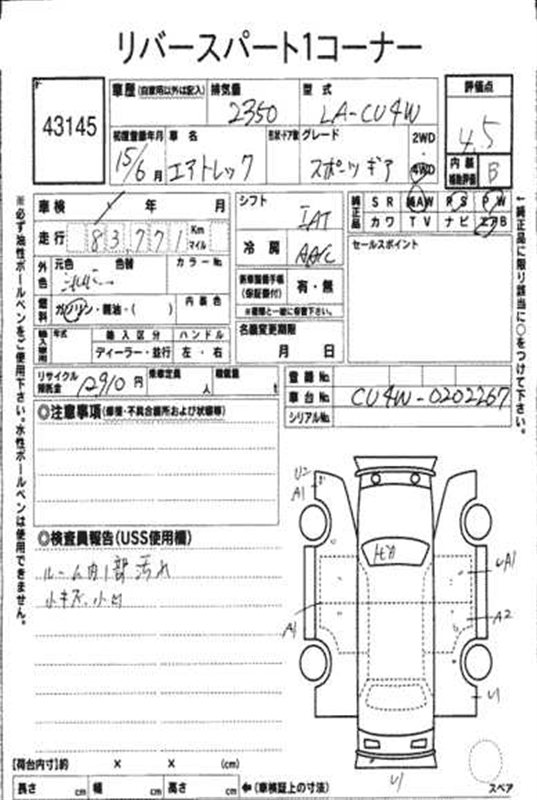 リバースパート1コーナー
43145
車歴 (自家用以外は記入)
排気量
2350
型式
LA-CU4W
評価点
4.5
初度登録年月
15/6月
車名
エアトレック
形状・ドア数
グレード
スポーツギア
2WD
4WD
内装
補助評価
B
車検
年 月
シフト
IAT
純正品
SR 純AW PS PW
カワ TV ナビ エアB
走行
83,771
Km
マイル
冷房
AAC
セールスポイント
外色
元色 色替
カラーNo.
燃料
ガソリン・軽油・( )
内装色
新車整備手帳
(保証書付)
有・無
※書類と一緒に保管下さい。
名義変更期限
月 日
輸入車用
年式
輸入区分
ハンドル
ディーラー・並行
左・右
リサイクル
預託金
12910円
乗車定員
人
積載量
t
登録No.
車台No.
CU4W-0202267
シリアルNo.
◎注意事項(修復・不具合箇所および状態等)
◎検査員報告(USS使用欄)
ルーム内1部汚れ
小キズ、小凹
U2
A1
UA1
A1
A2
U1
U1
スペア
【荷台内寸】約 × × (cm)
長さ cm 幅 cm 高さ cm ←(車検証上の寸法)
※必ず油性ボールペンをご使用下さい。水性ボールペンは使用できません。
←純正品に限り該当に○をつけて下さい。